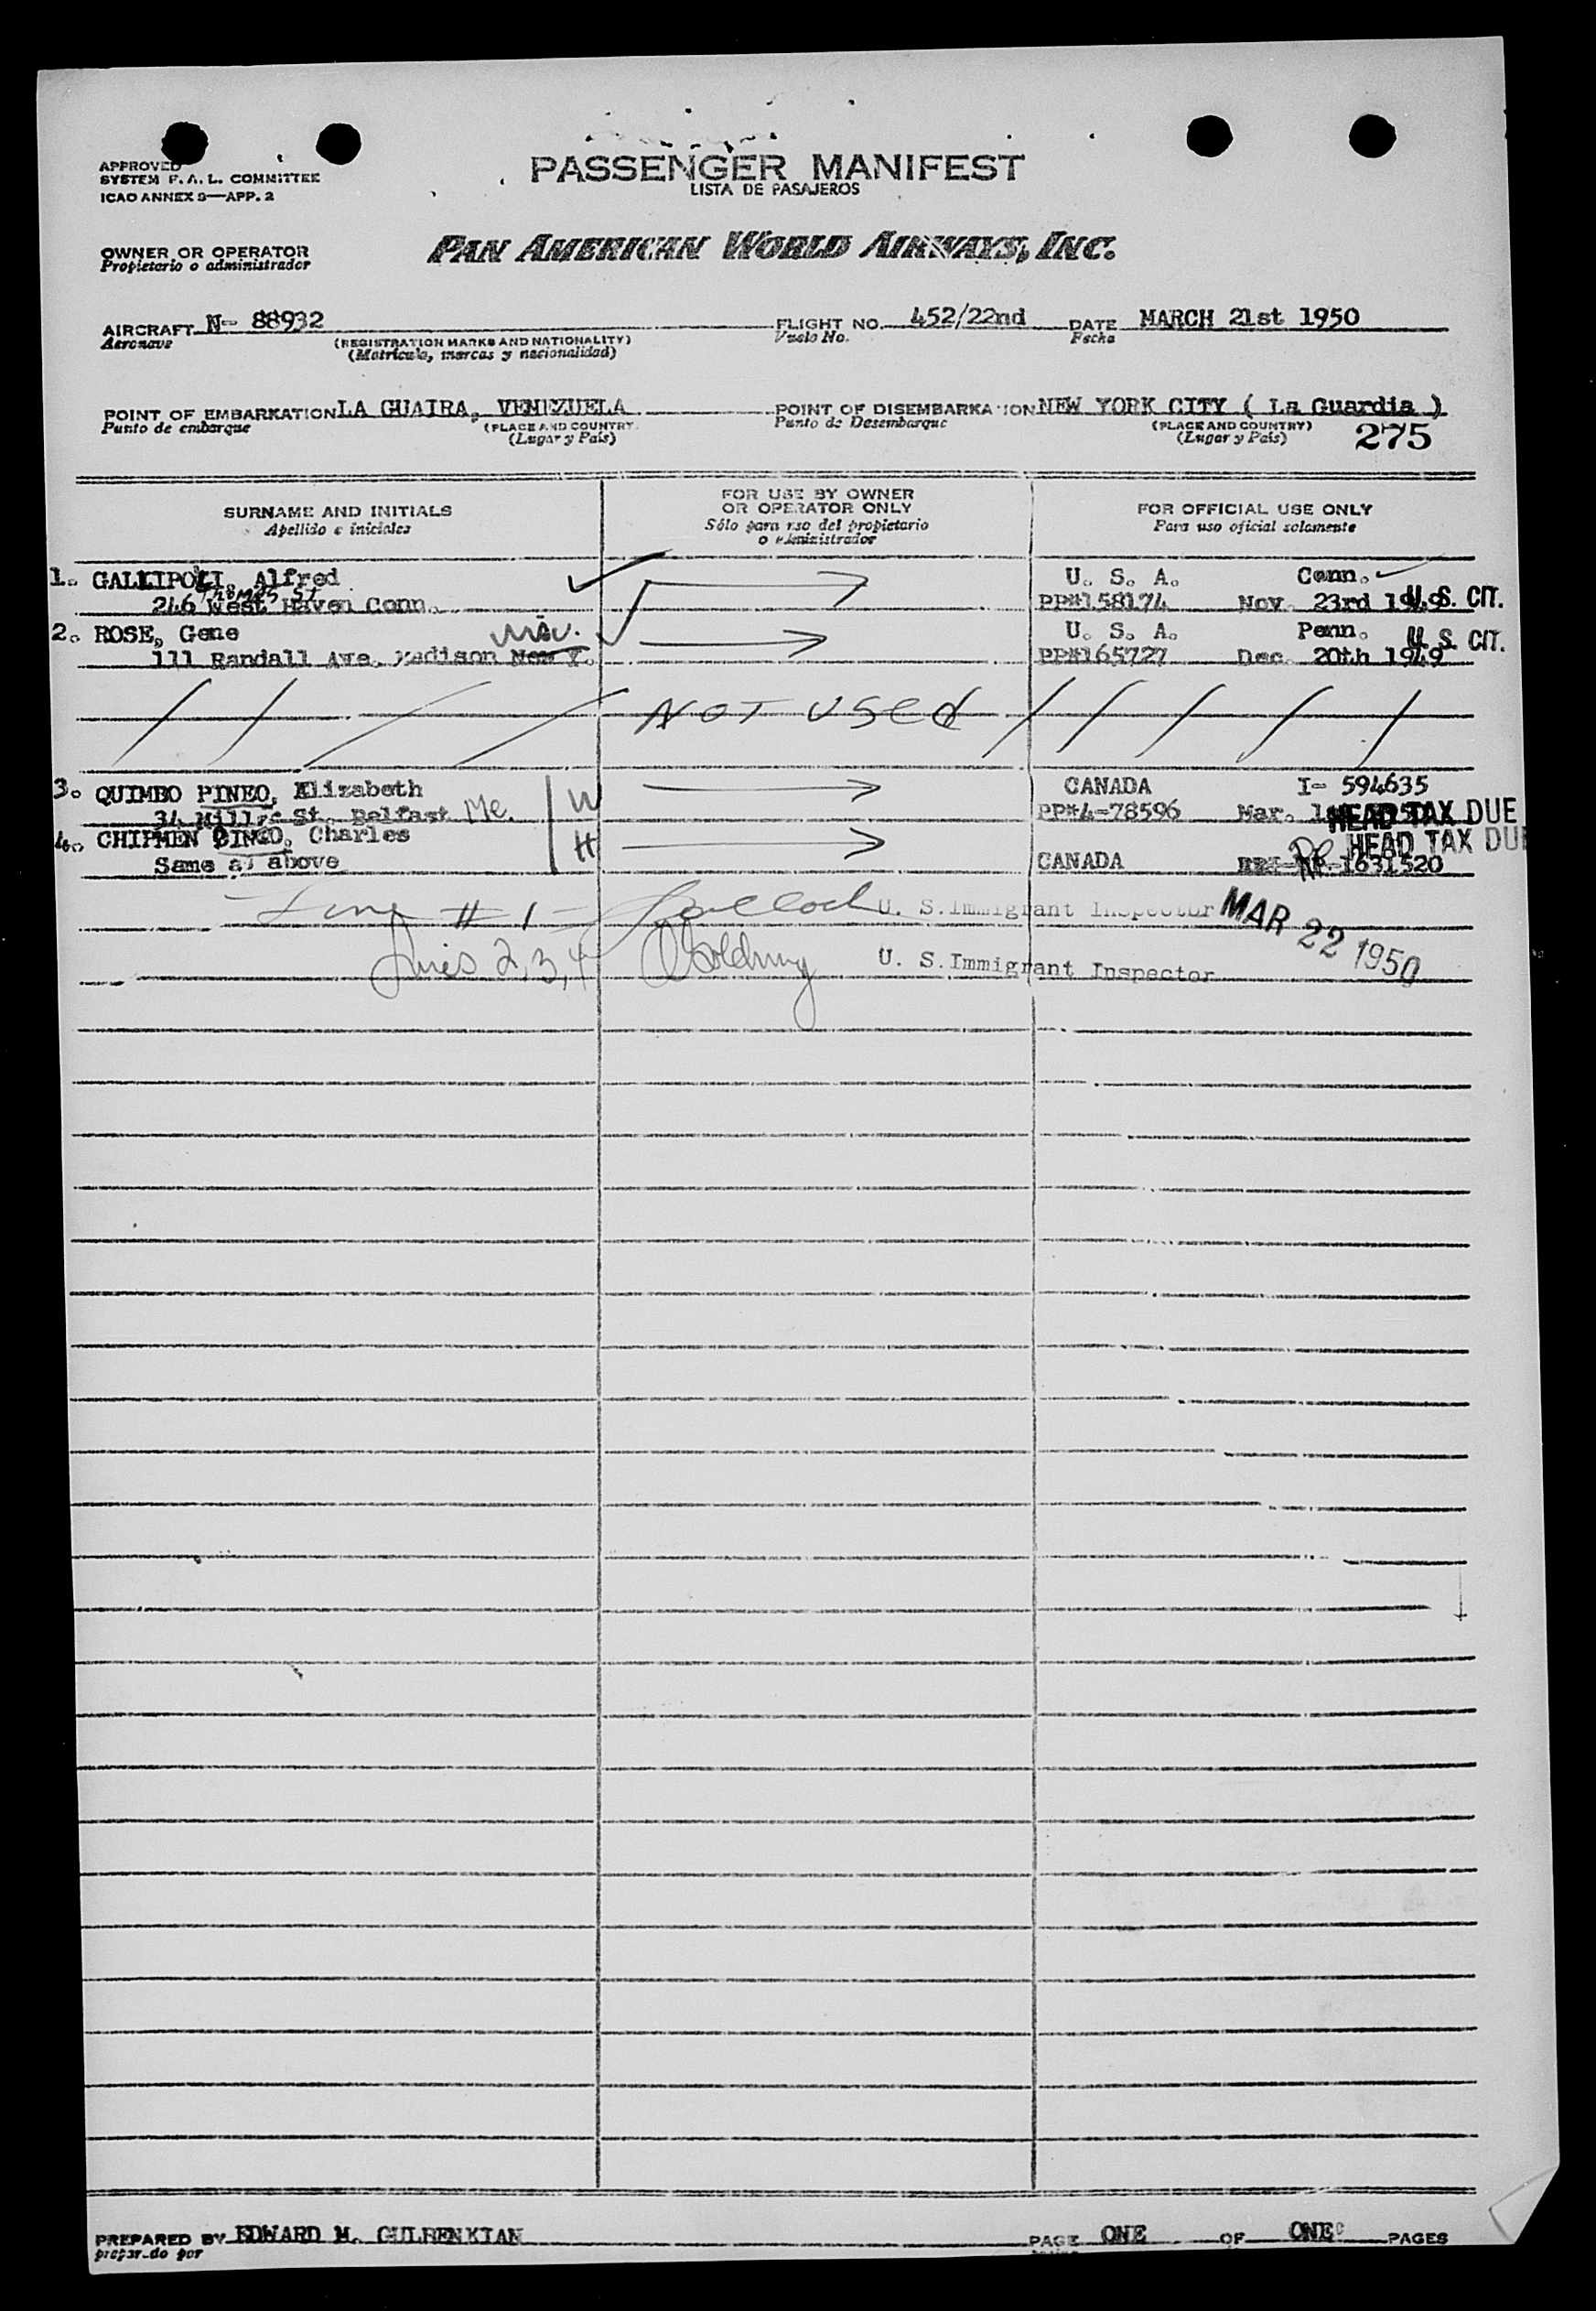 APPROVED
SYSTEM F. A. L. COMMITTEE
ICAO ANNEX 9—APP. 2
PASSENGER MANIFEST
LISTA DE PASAJEROS
OWNER OR OPERATOR
Propietario o administrador
PAN AMERICAN WORLD AIRWAYS, INC.
AIRCRAFT N- 88932
Aeronave
(REGISTRATION MARKS AND NATIONALITY)
(Matricula, marcas y nacionalidad)
FLIGHT NO. 452/22nd DATE MARCH 21st 1950
Vuelo No. Fecha
POINT OF EMBARKATION LA GUAIRA, VENEZUELA
Punto de embarque
(PLACE AND COUNTRY
(Lugar y País)
POINT OF DISEMBARKATION NEW YORK CITY ( La Guardia )
Punto de Desembarque
(PLACE AND COUNTRY)
(Lugar y País)
275
SURNAME AND INITIALS
Apellido e iniciales
FOR USE BY OWNER
OR OPERATOR ONLY
Sólo para uso del propietario
o administrador
FOR OFFICIAL USE ONLY
Para uso oficial solamente
1. GALLIPOLI, Alfred U. S. A. Conn.
Thomas St
246 West Haven Conn. PP#158174 Nov. 23rd 1949 U. S. CIT.
2. ROSE, Gene Wis. U. S. A. Penn. U. S. CIT.
111 Randall Ave. Madison New Y. PP#165727 Dec. 20th 1949
NOT USED
3. QUIMBO PINEO, Elizabeth W CANADA I- 594635
34 Miller St. Belfast Me. PP#4-78596 Mar. HEAD TAX DUE
4. CHIPMEN PINEO, Charles H HEAD TAX DUE
Same as above CANADA RP-1631520
Line # 1 - Pollock U. S. Immigrant Inspector MAR 22 1950
Lines 2, 3, 4 Golding U. S. Immigrant Inspector
PREPARED BY EDWARD M. GULBENKIAN
preparado por
PAGE ONE OF ONE PAGES